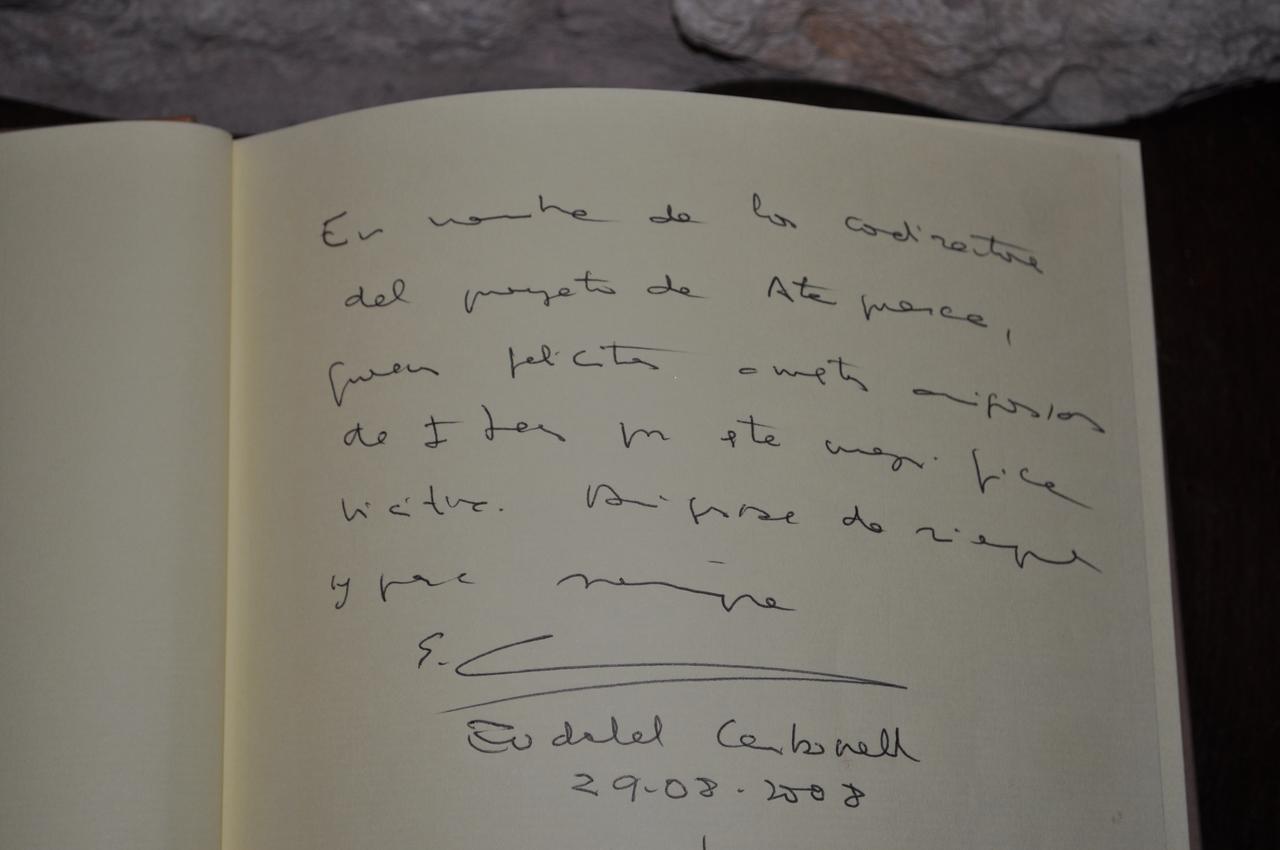 En nombre de los codirectores
del proyecto de Atapuerca,
quiero felicitar a nuestros amigos/as
de por este magnífica
iniciativa. de siempre
y para siempre
E. C
Eudald Carbonell
29-08-2008